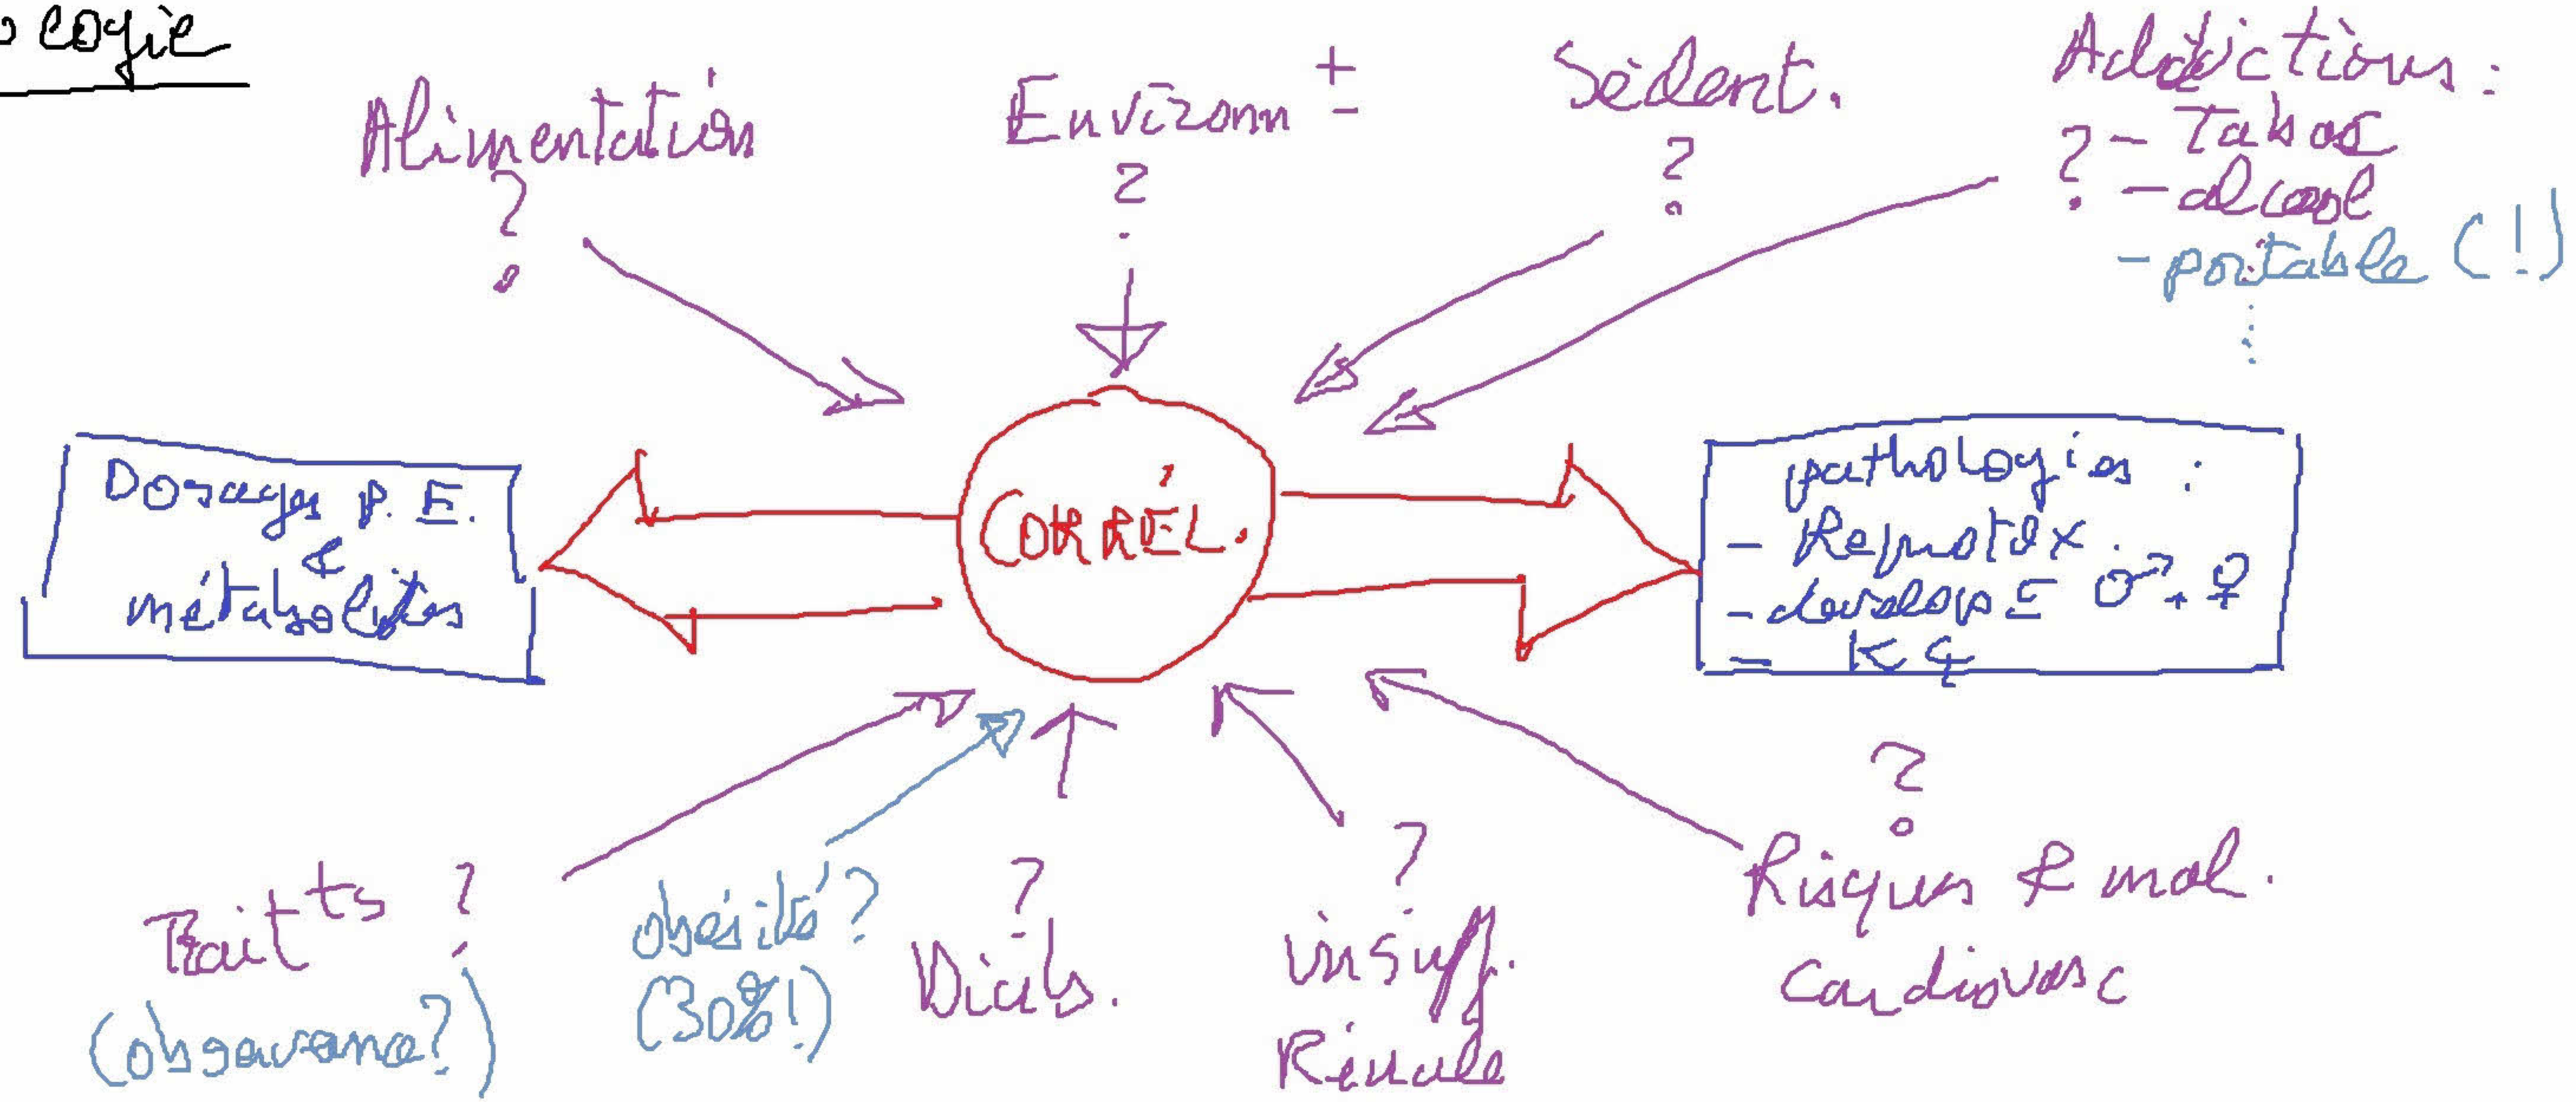 cogie
Alimentation
?
Environn ±
?
Sédent.
?
Addictions :
? - Tabac
- alcool
- portable (!)
Dosages P.E.
&
métabolites
CORRÉL.
pathologies :
- Reprotox.
- develop E ♂, ♀
- K
Traitts ?
(observance?)
obésité ?
(30%!)
?
Diab.
?
insuff.
Rénale
?
Risques & mal.
Cardiovasc